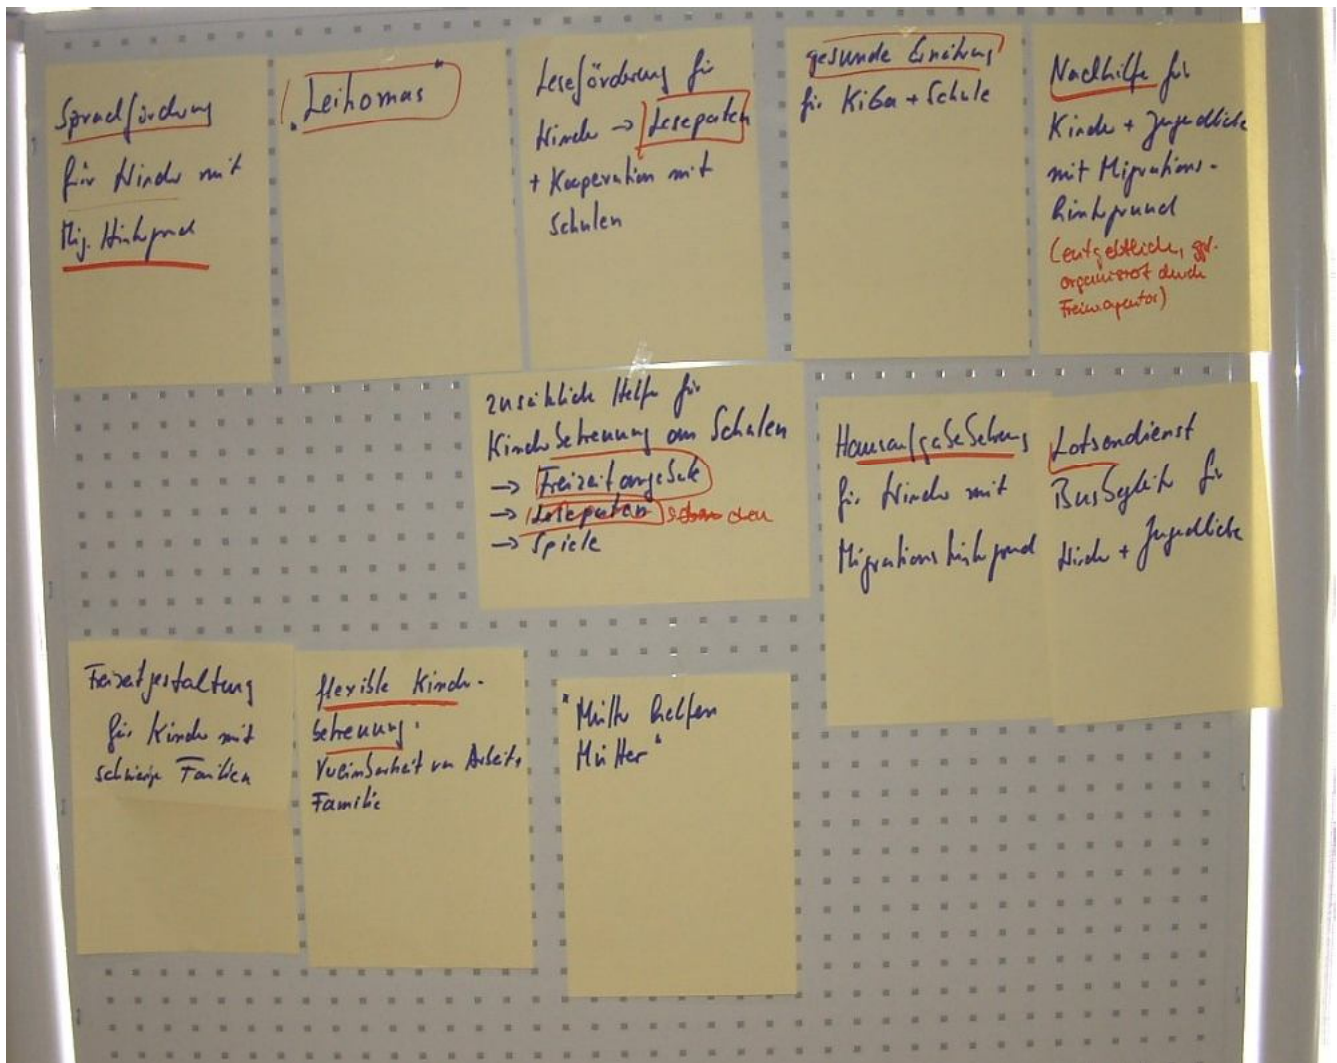 Sprachförderung
für Kinder mit
Mig. Hintergrund
"Leihomas"
Leseförderung für
Kinder → Lesepaten
+ Kooperation mit
Schulen
gesunde Ernährung
für KiGa + Schule
Nachhilfe für
Kinder + Jugendliche
mit Migrations-
hintergrund
(entgeltliche, ggf.
organisiert durch
Freiw.agentur)
zusätzliche Helfer für
Kinderbetreuung an Schulen
→ Freizeitangebote
→ Lesepaten
→ Spiele
Hausaufgabebetreuung
für Kinder mit
Migrationshintergrund
Lotsendienst
Busbegleiter für
Kinder + Jugendliche
Freizeitgestaltung
für Kinder mit
schwierige Familien
flexible Kinder-
betreuung:
Vereinbarkeit von Arbeit +
Familie
"Mütter helfen
Mütter"